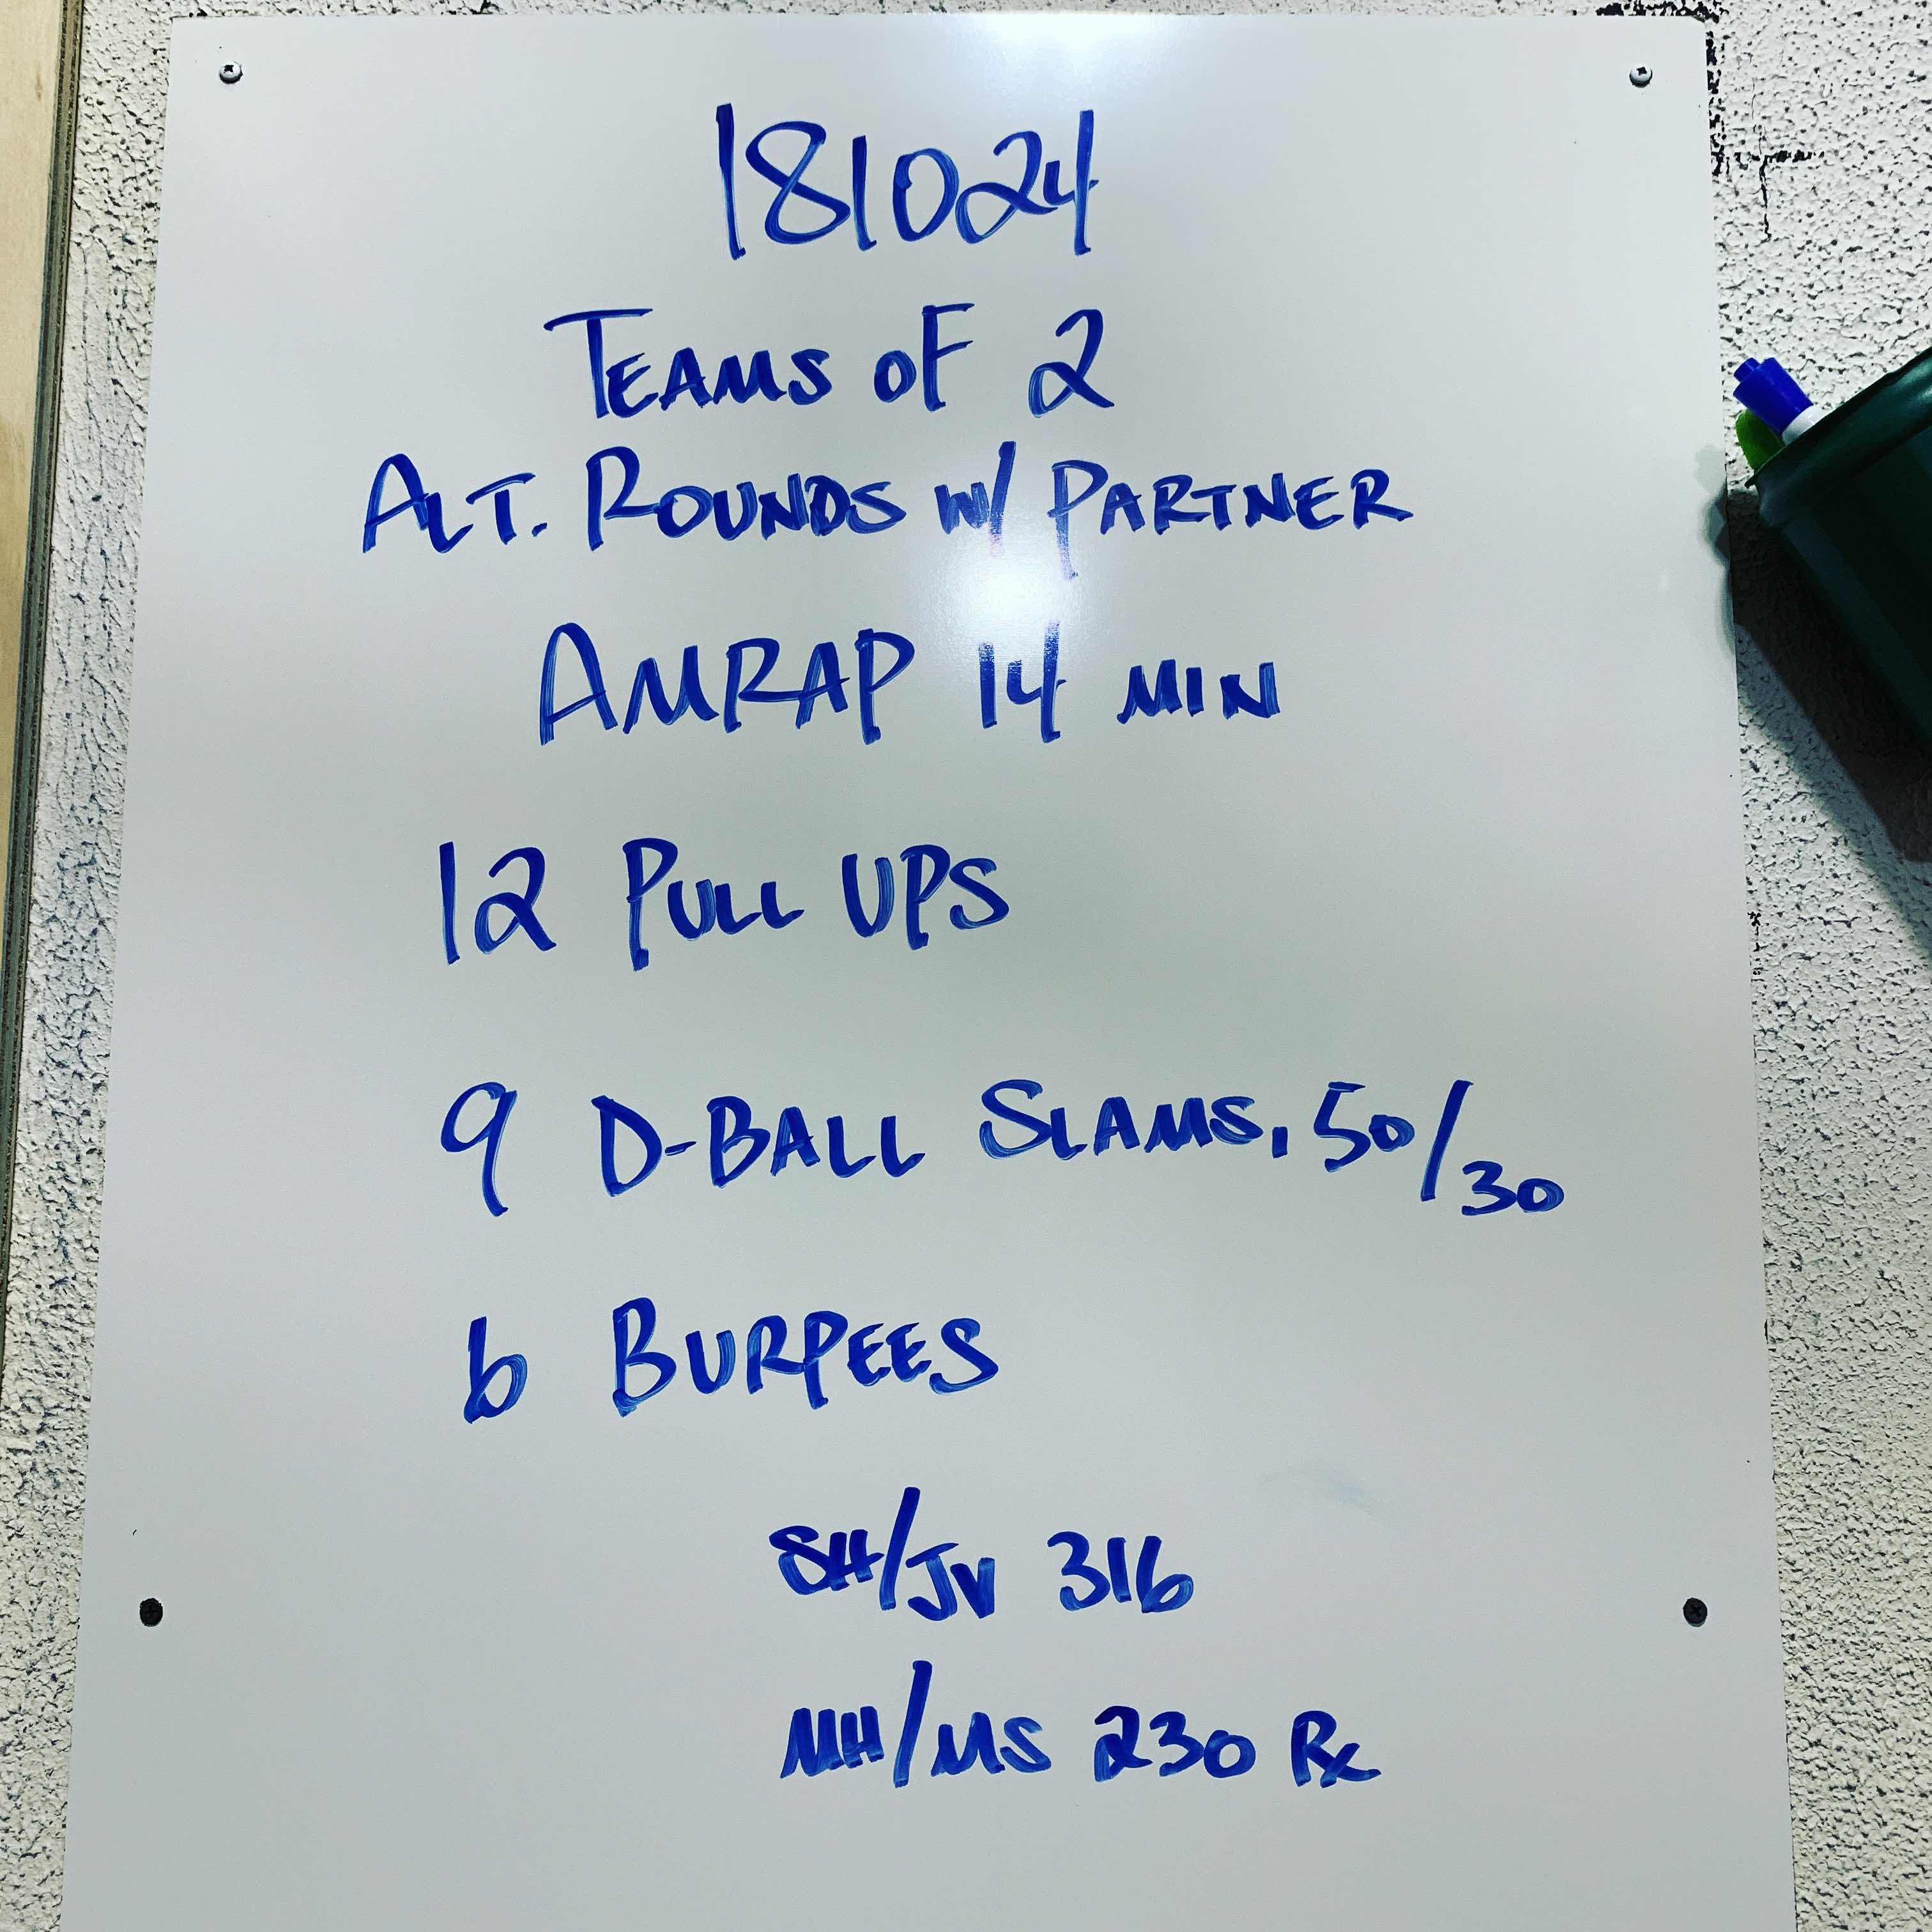 181024
TEAMS OF 2
ALT. ROUNDS W/ PARTNER
AMRAP 14 MIN
12 PULL UPS
9 D-BALL SLAMS, 50/30
6 BURPEES
SH/JV 316
MH/MS 230 Rx